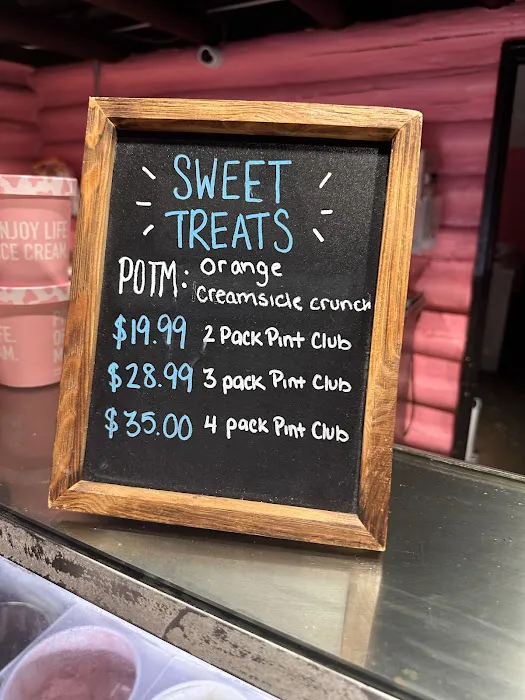 SWEET
TREATS
POTM: Orange
Creamsicle crunch
$19.99 2 Pack Pint Club
$28.99 3 pack Pint Club
$35.00 4 pack Pint Club
NJOY LIFE
CE CREAM